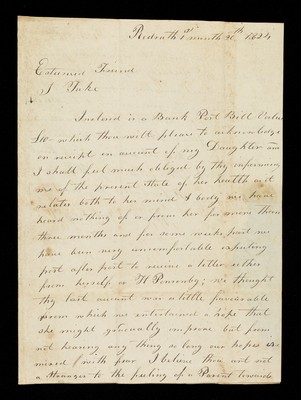 Redruth 2nd month 1824
Esteemed Friend
S Tuke
Inclosed is a Bank Post Bill Value
which thou wilt please to acknowledge
on receipt on account of my Daughter and
I shall feel much obliged by thy informing
me of the present State of her health as it
relates both to her mind & body we have
heard nothing of or from her for more than
three months and for some weeks past we
have been very uncomfortable expecting
post after post to receive a letter either
from herself or H Ponsonby; we thought
thy last account was a little favourable
from which we entertained a hope that
she might gradually improve but from
not hearing any thing so long our hopes are
mixed with fear I believe thou art not
a stranger to the feeling of a Parent towards